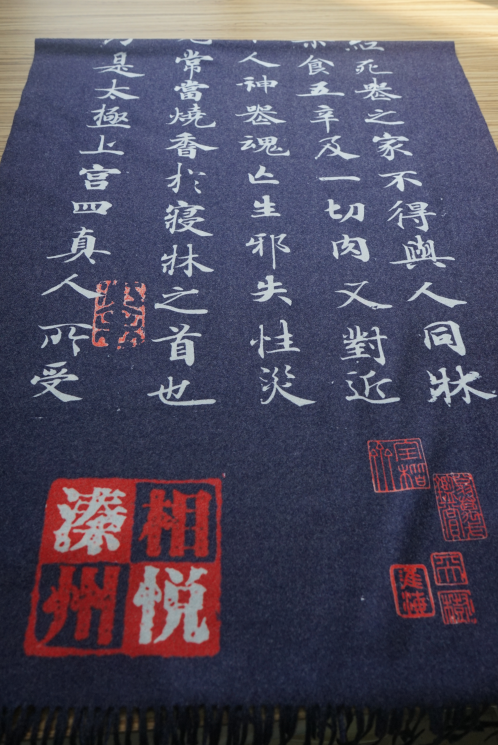 死喪之家不得與人同牀
食五辛及一切肉又對近
人神喪魂亡生邪失性災
常當燒香於寢牀之首也
是太極上宮四真人所受
相悦
溱州